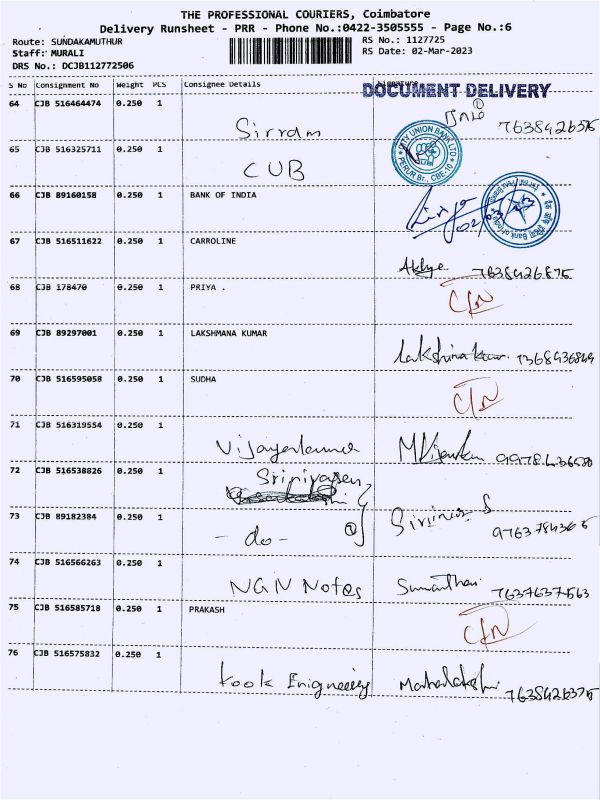 THE PROFESSIONAL COURIERS, Coimbatore
Delivery Runsheet - PRR - Phone No.:0422-3505555 - Page No.:6
Route: SUNDAKAMUTHUR RS No.: 1127725
Staff: MURALI RS Date: 02-Mar-2023
DRS No.: DCJB112772506
S No Consignment No Weight PCS Consignee Details Signature
DOCUMENT DELIVERY
64 CJB 516464474 0.250 1 Sirram 7638426376
65 CJB 516325711 0.250 1 CUB
CITY UNION BANK LTD
PERUR Br., CBE-10
66 CJB 89160158 0.250 1 BANK OF INDIA
Bank of India
67 CJB 516511622 0.250 1 CARROLINE 7638426875
68 CJB 178470 0.250 1 PRIYA . C/N
69 CJB 89297001 0.250 1 LAKSHMANA KUMAR
70 CJB 516595058 0.250 1 SUDHA C/N
71 CJB 516319554 0.250 1 Vijayakumar
72 CJB 516538826 0.250 1 Srinivasen
73 CJB 89182384 0.250 1 - do -
74 CJB 516566263 0.250 1 NGN Notes 7637637563
75 CJB 516585718 0.250 1 PRAKASH C/N
76 CJB 516575832 0.250 1 kook Enigneering Mahalakshmi 7638426375